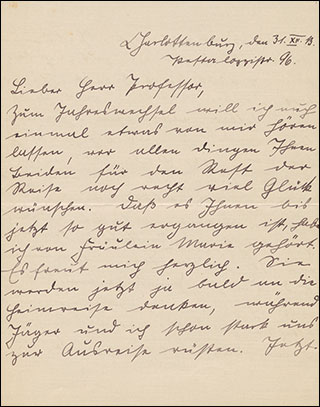 Charlottenburg, den 31. XII. 13.
Pestalozzistr. 96.
Lieber Herr Professor,
Zum Jahreswechsel will ich noch
einmal etwas von mir hören
lassen, vor allen dingen Ihnen
Beiden für den Rest der
Reise noch recht viel Glück
wünschen. Daß es Ihnen bis
jetzt so gut ergangen ist, habe
ich von Fräulein Marie gehört.
Es freut mich herzlich. Sie
werden jetzt ja bald an die
Heimreise denken, während
Jäger und ich schon stark uns
zur Ausreise rüsten. Jetzt